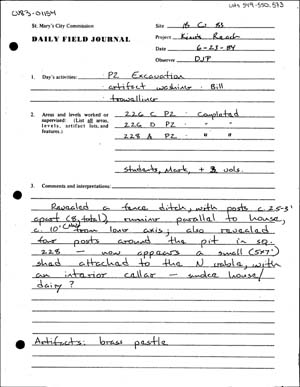 St. Mary's City Commission
DAILY FIELD JOURNAL
Site
Project Reach
Date 6-25-84
Observer DJP
1. Day's activities: PZ Excavation
artifact washing - Bill
travelling
2. Areas and levels worked or 226 C PZ - Completed
supervised: (List all areas, 226 D PZ " "
levels, artifact lots, and 228 A PZ " "
features.)
students, Mark, + vols.
3. Comments and interpretations:
Revealed a fence ditch, with posts c. 2.5-3'
apart (8, total) running parallel to house,
c. 10' from long axis; also revealed
four posts around the pit in sq.
228 — now appears a small (5x7')
shed attached to the N gable, with
an interior cellar — under house/
dairy?
Artifacts: brass pestle